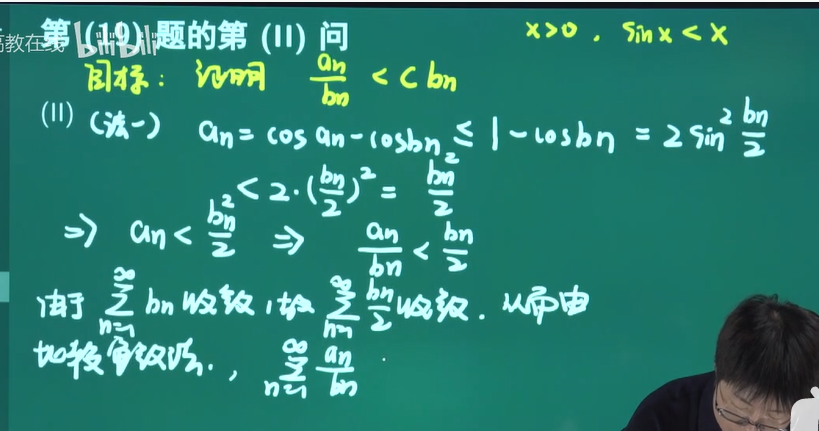 第(19)题的第(II)问
高教在线 bilibili
x>0, sinx<x
目标: 证明 an/bn < C bn
(II) (法一) an = cos an - cos bn ≤ 1 - cos bn = 2 sin² bn/2
< 2·(bn/2)² = bn²/2
⇒ an < bn²/2 ⇒ an/bn < bn/2
由于 ∑_{n=1}^{∞} bn 收敛, 故 ∑_{n=1}^{∞} bn/2 收敛. 从而由
比较审敛法, ∑_{n=1}^{∞} an/bn